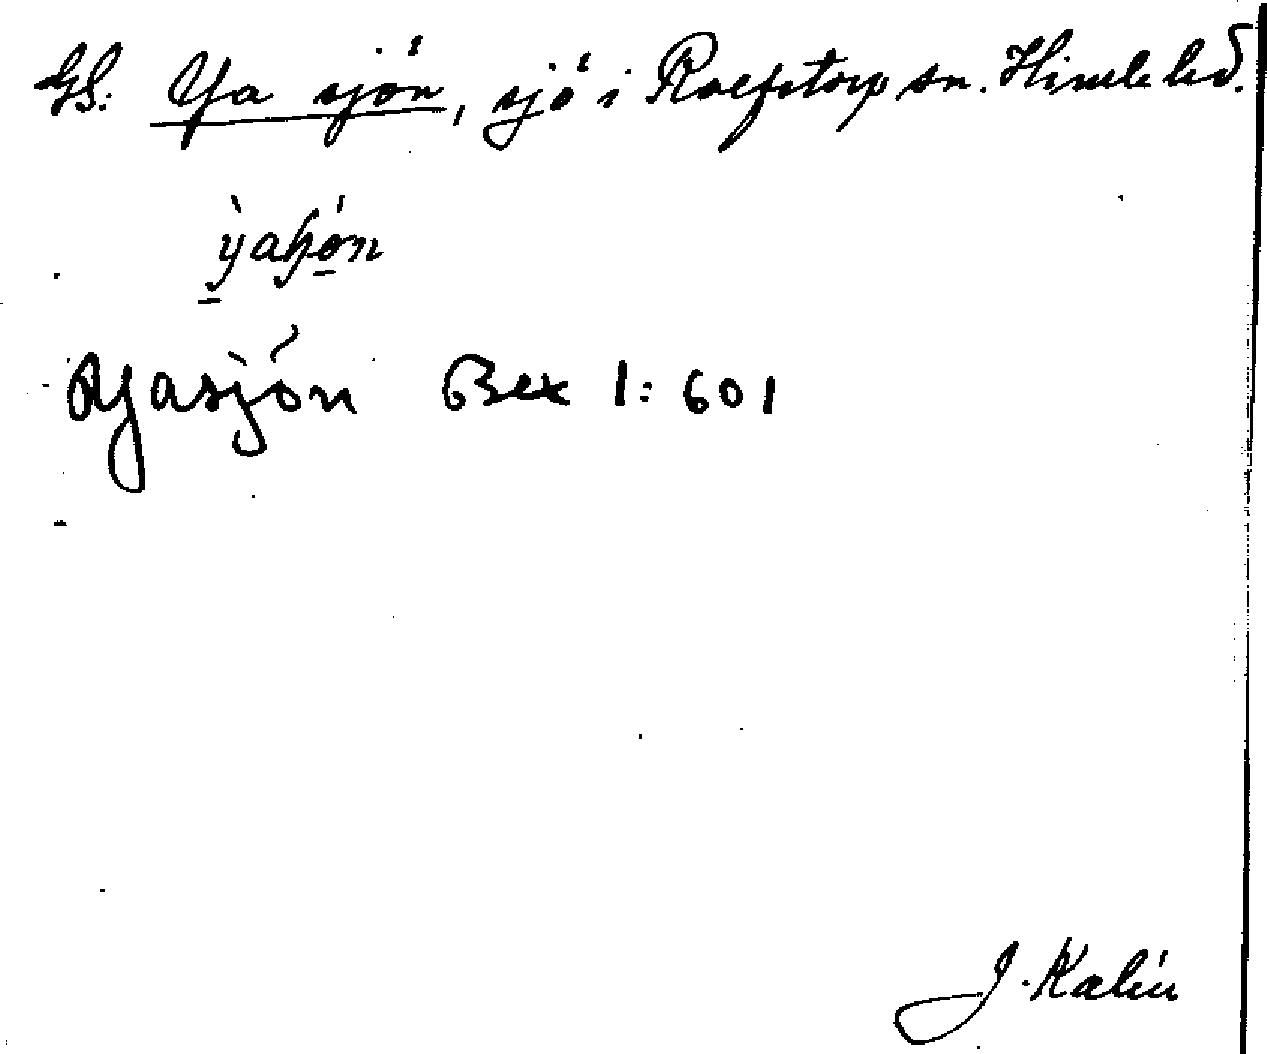 GS: Ya sjön, sjö i Rolfstorp sn. Himle hd.
Yasjön Bex 1:601
J. Kalén